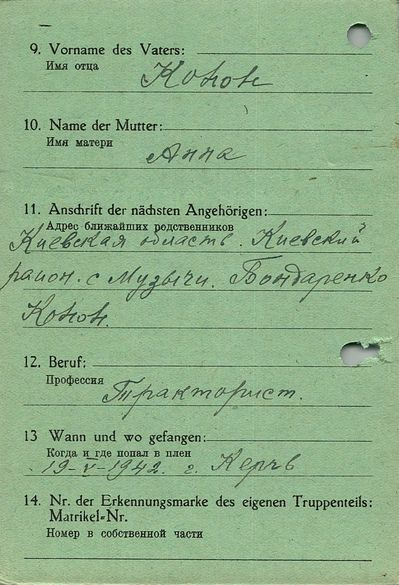 9. Vorname des Vaters:
Имя отца
Конон
10. Name der Mutter:
Имя матери
Анна
11. Anschrift der nächsten Angehörigen:
Адрес ближайших родственников
Киевская область. Киевский
район. с Музычи. Бондаренко
Конон.
12. Beruf:
Профессия
Тракторист.
13 Wann und wo gefangen:
Когда и где попал в плен
19-V-1942. г. Керчь
14. Nr. der Erkennungsmarke des eigenen Truppenteils:
Matrikel-Nr.
Номер в собственной части